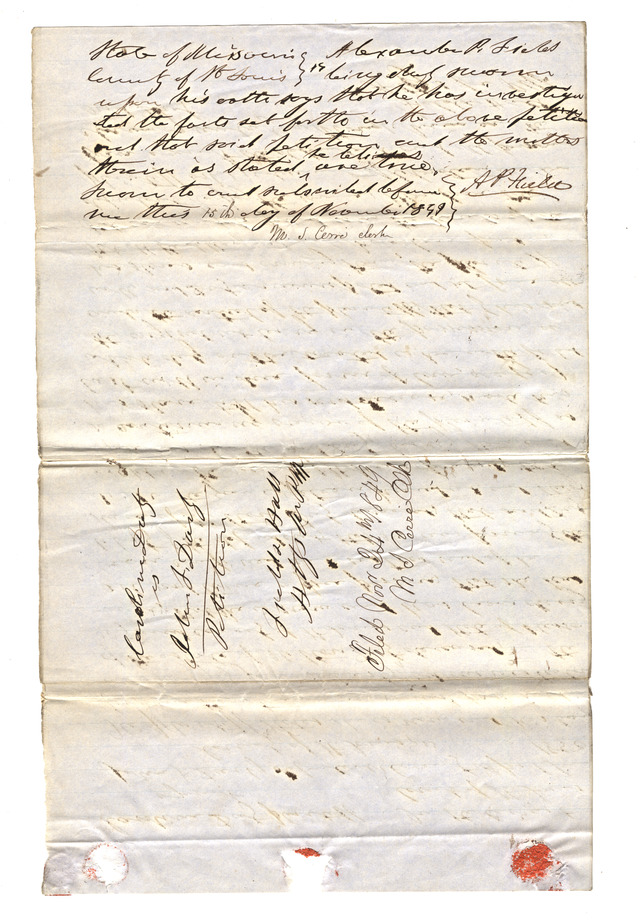 State of Missouri } Alexander P. Field
County of St Louis } being duly sworn
upon his oath says that he has investiga
ted the facts set forth in the above petition
and that said petition and the matters
therein as stated are true,
he believes
Sworn to and subscribed before } A P Field
me this 15th day of November 1849 }
M. S. Cerré clerk
vs
Petition
Field & Hall
Filed Nov
M S Cerré Clk